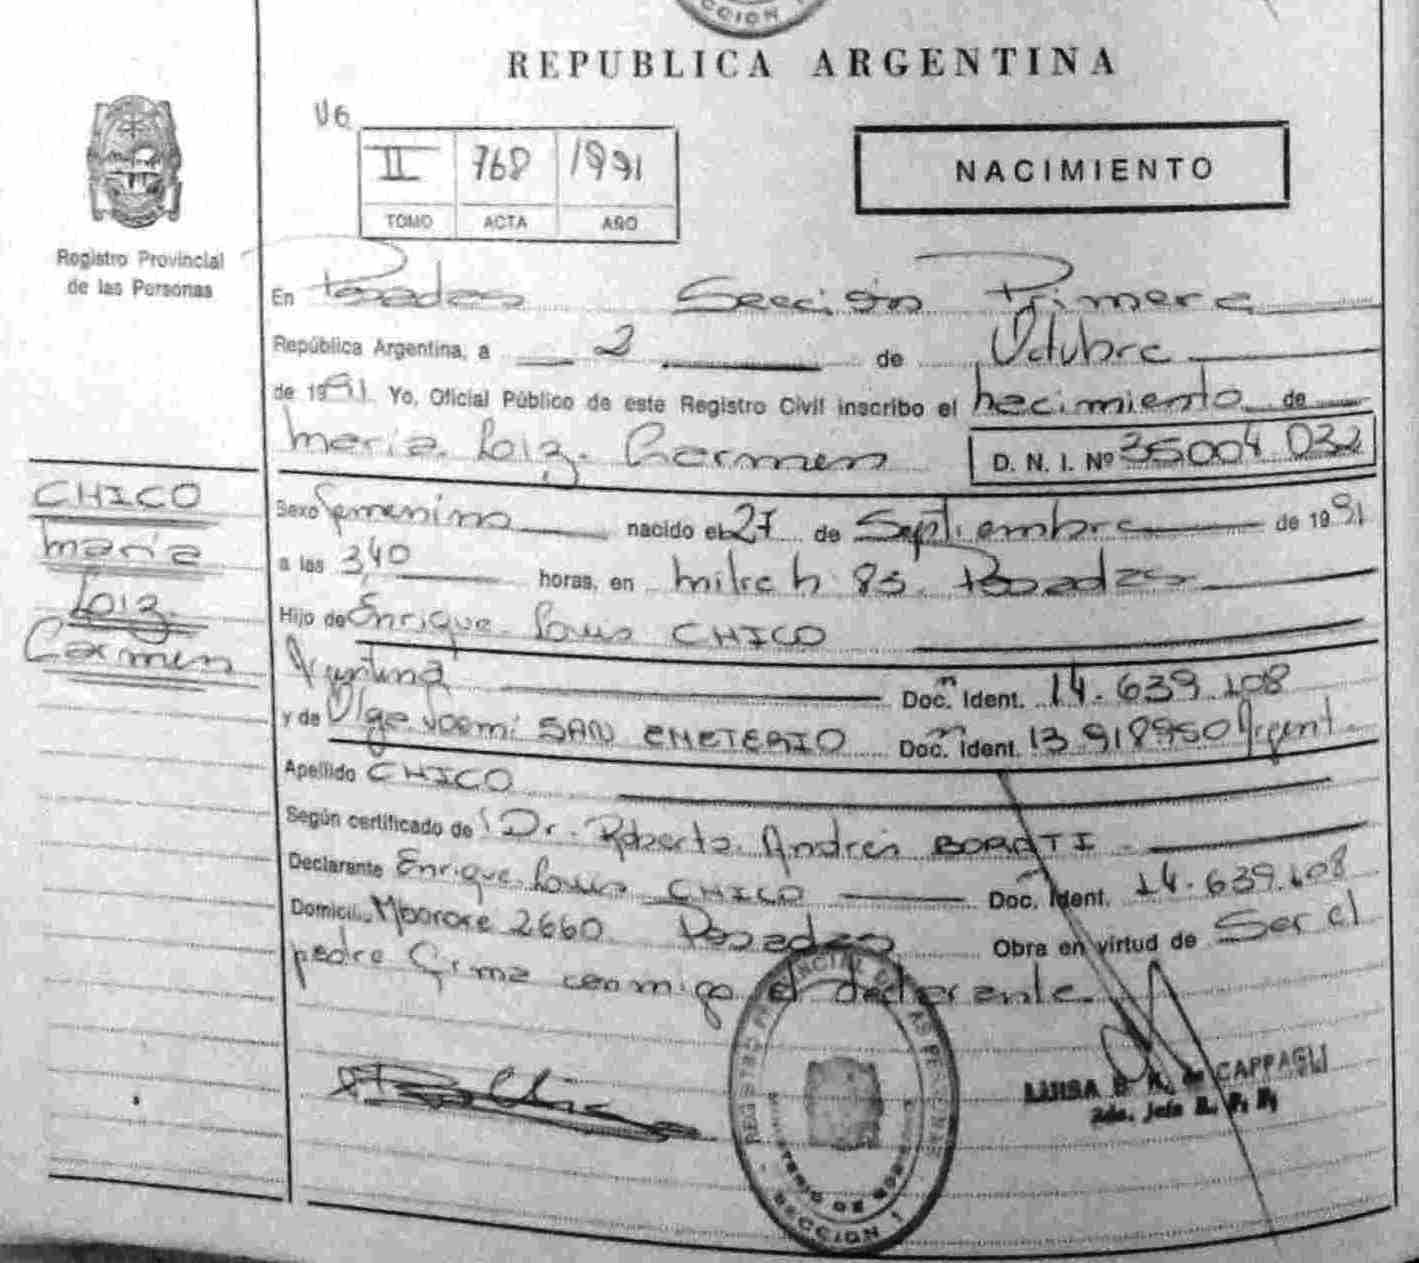 CCION
REPUBLICA ARGENTINA
V6
II 768 1991
TOMO ACTA AÑO
NACIMIENTO
Registro Provincial
de las Personas
En Posadas Sección Primera
República Argentina, a 2 de Octubre
de 1991 Yo, Oficial Público de este Registro Civil inscribo el nacimiento de
maria Loiz. Carmen D. N. I. Nº 35004.032
CHICO
maria
Loiz.
Carmen
Sexo femenino nacido el 27 de Septiembre de 1991
a las 3,40 horas, en mitre h 83. Posadas
Hijo de Enrique Louis CHICO
Argentina Doc. Ident. 14.639.108
y de Olga Noemi SAN EMETERIO Doc. Ident. 13.918950 Argent.
Apellido CHICO
Según certificado de Dr. Roberto Andrés BORATTI
Declarante Enrique Louis CHICO Doc. Ident. 14.639.108
Domicil. Mborore 2660 Posadas Obra en virtud de Ser el
padre firma conmigo el declarante.
REGISTRO PROVINCIAL DE LAS PERSONAS
MINISTERIO DE
SECCION 1
LUISA CAPPAGLI
2da. Jefa R. P. P.